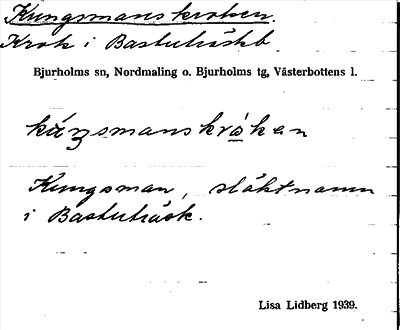 Kungsmanskroken.
Krok i Bastuträskb
Bjurholms sn, Nordmaling o. Bjurholms tg, Västerbottens l.
kúŋsmanskrokən
Kungsman, släktnamn
i Bastuträsk.
Lisa Lidberg 1939.